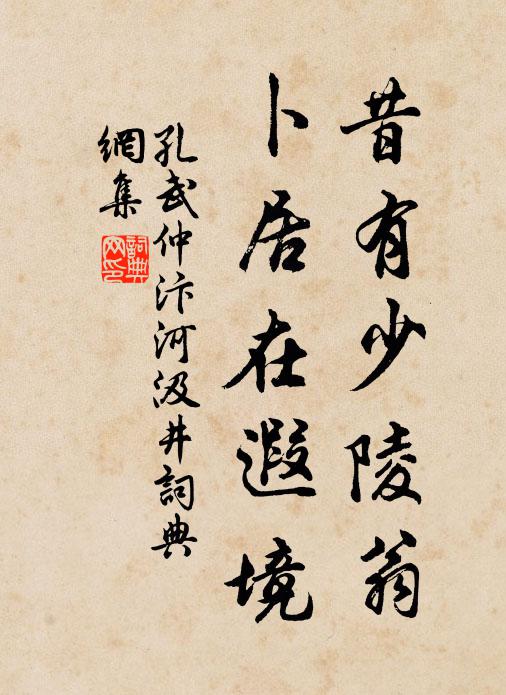 昔有少陵翁
卜居在遐境
孔武仲汴河汲井詞典
網集
詞典
网印